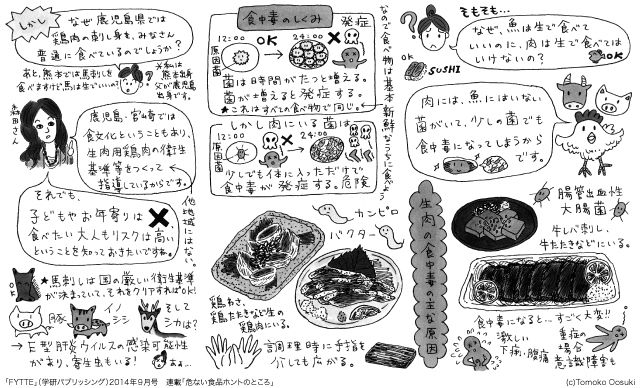 そもそも…
なぜ、魚は生で食べて
いいのに、肉は生で食べては
いけないの?
OK
SUSHI
肉には、魚にはいない
菌がいて、少しの菌でも
食中毒になってしまうから
です。
なので食べ物は基本新鮮なうちに食べよう
食中毒のしくみ
発症
12:00
OK
24:00
原因菌
菌は時間がたつと増える。
菌が増えると発症する。
★これはすべての食べ物で同じ。
しかし肉にいる菌は
12:00
24:00
原因菌
少しでも体に入っただけで
食中毒が発症する。危険
生肉の食中毒の主な原因
腸管出血性
大腸菌
牛レバ刺し、
牛たたきなどにいる。
食中毒になると…すごく大変!!
激しい
下痢、腹痛
重症の
場合
意識障害も
カンピロ
バクター
鶏わさ、
鶏たたきなど生の
鶏肉にいる。
調理時に手指を
介しても広がる。
しかし
なぜ鹿児島県では
鶏肉の刺し身を、みなさん
普通に食べているのでしょうか?
あと、熊本では馬刺しを
食べますけど馬は生でいいの?
★私は
熊本出身
父が鹿児島
出身です。
森田さん
鹿児島・宮崎では
食文化ということもあり、
生肉用鶏肉の衛生
基準等をつくって
指導しているからです。
他地域にはない
それでも、
子どもやお年寄りは✖、
食べたい大人もリスクは高い
ということを知っておきたいですね。
★馬刺しは国の厳しい衛生基準
が決まっていて、それをクリアすればOK!
豚
イノシシ
そして
シカは?
→E型肝炎ウイルスの感染可能性
があり、寄生虫もいる!
「FYTTE」(学研パブリッシング)2014年9月号 連載「危ない食品ホントのところ」
(c)Tomoko Oosuki